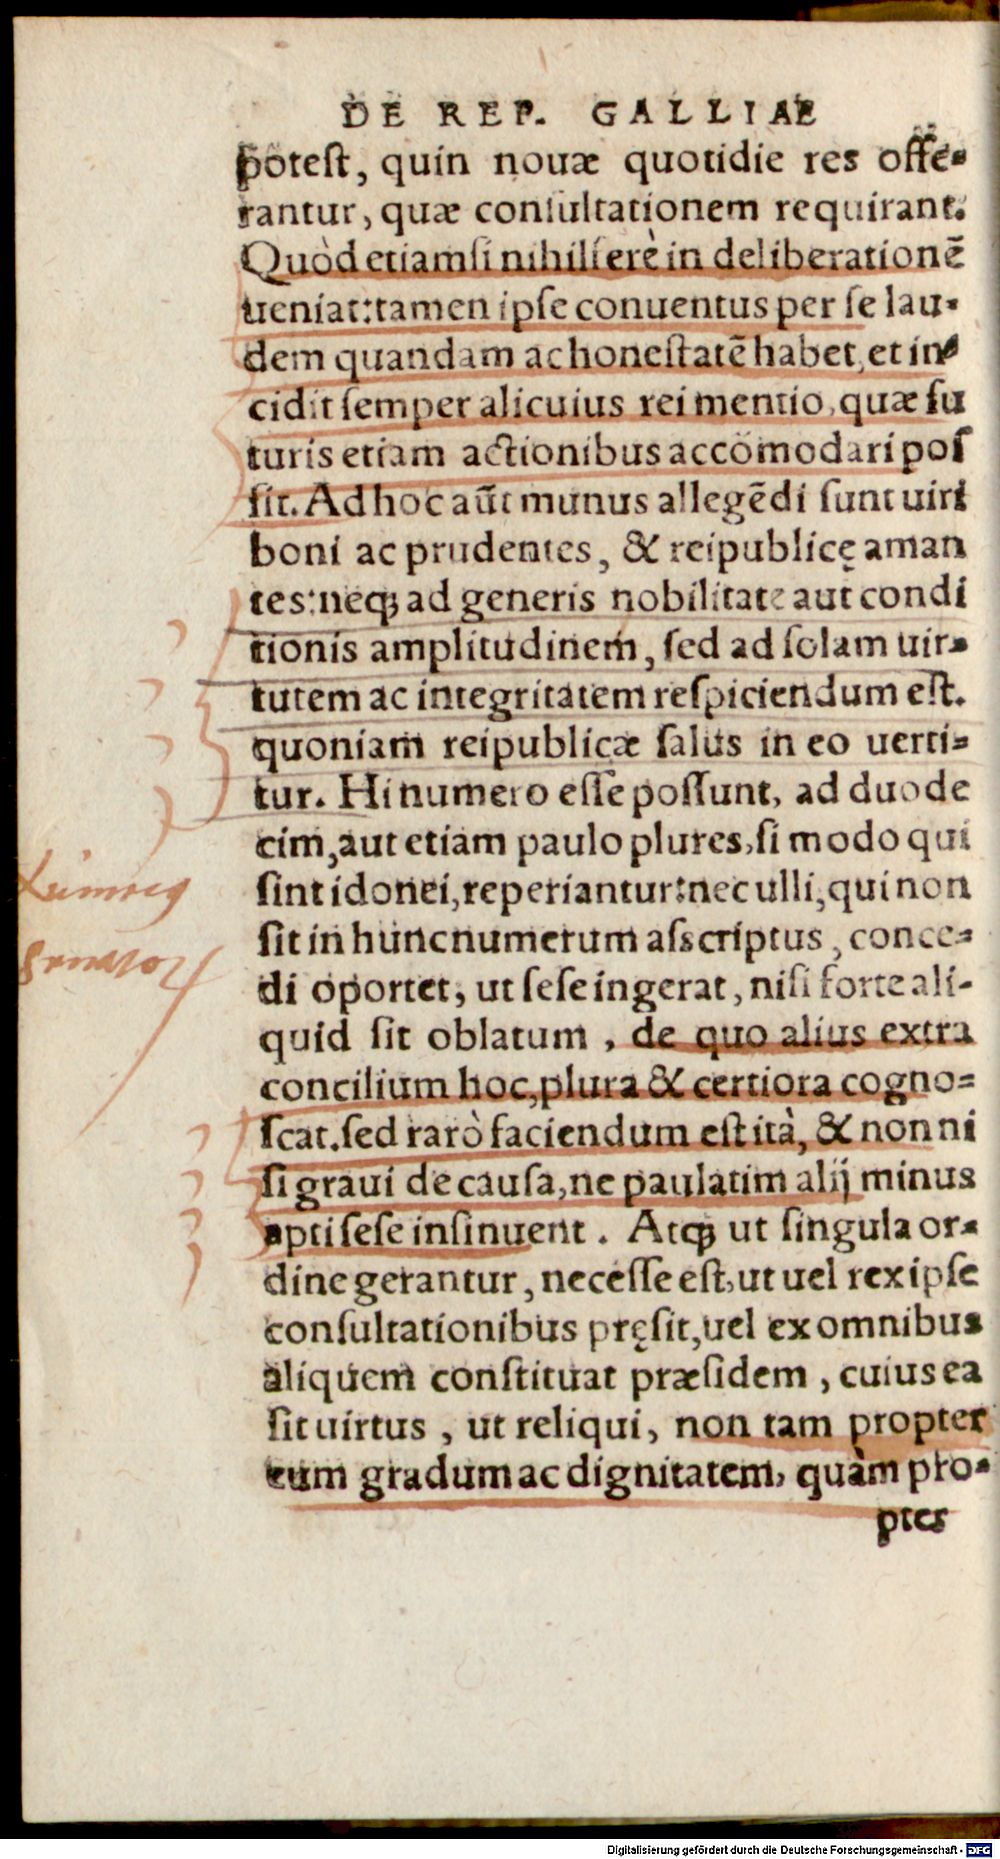 DE REP. GALLIAE
potest, quin nouæ quotidie res offe-
rantur, quæ consultationem requirant.
Quòd etiamsi nihil ferè in deliberationē
ueniat: tamen ipse conuentus per se lau-
dem quandam ac honestatē habet, et in-
cidit semper alicuius rei mentio, quæ fu
turis etiam actionibus accōmodari pos
sit. Ad hoc aūt munus allegēdi sunt uiri
boni ac prudentes, & reipublicę aman
tes: neqꝫ ad generis nobilitatē aut condi
tionis amplitudinem, sed ad solam uir-
tutem ac integritatem respiciendum est.
quoniam reipublicæ salus in eo uerti-
tur. Hi numero esse possunt, ad duode
cim, aut etiam paulo plures, si modo qui
sint idonei, reperiantur: nec ulli, qui non
sit in hunc numerum asscriptus, conce-
di oportet, ut sese ingerat, nisi forte ali-
quid sit oblatum, de quo alius extra
concilium hoc, plura & certiora cogno-
scat. sed rarò faciendum est ità, & non ni
si graui de causa, ne paulatim alij minus
apti sese insinuent. Atqꝫ ut singula or-
dine gerantur, necesse est, ut uel rex ipse
consultationibus pręsit, uel ex omnibus
aliquem constituat præsidem, cuius ea
sit uirtus, ut reliqui, non tam propter
eum gradum ac dignitatem, quàm pro-
pter
Digitalisierung gefördert durch die Deutsche Forschungsgemeinschaft - DFG